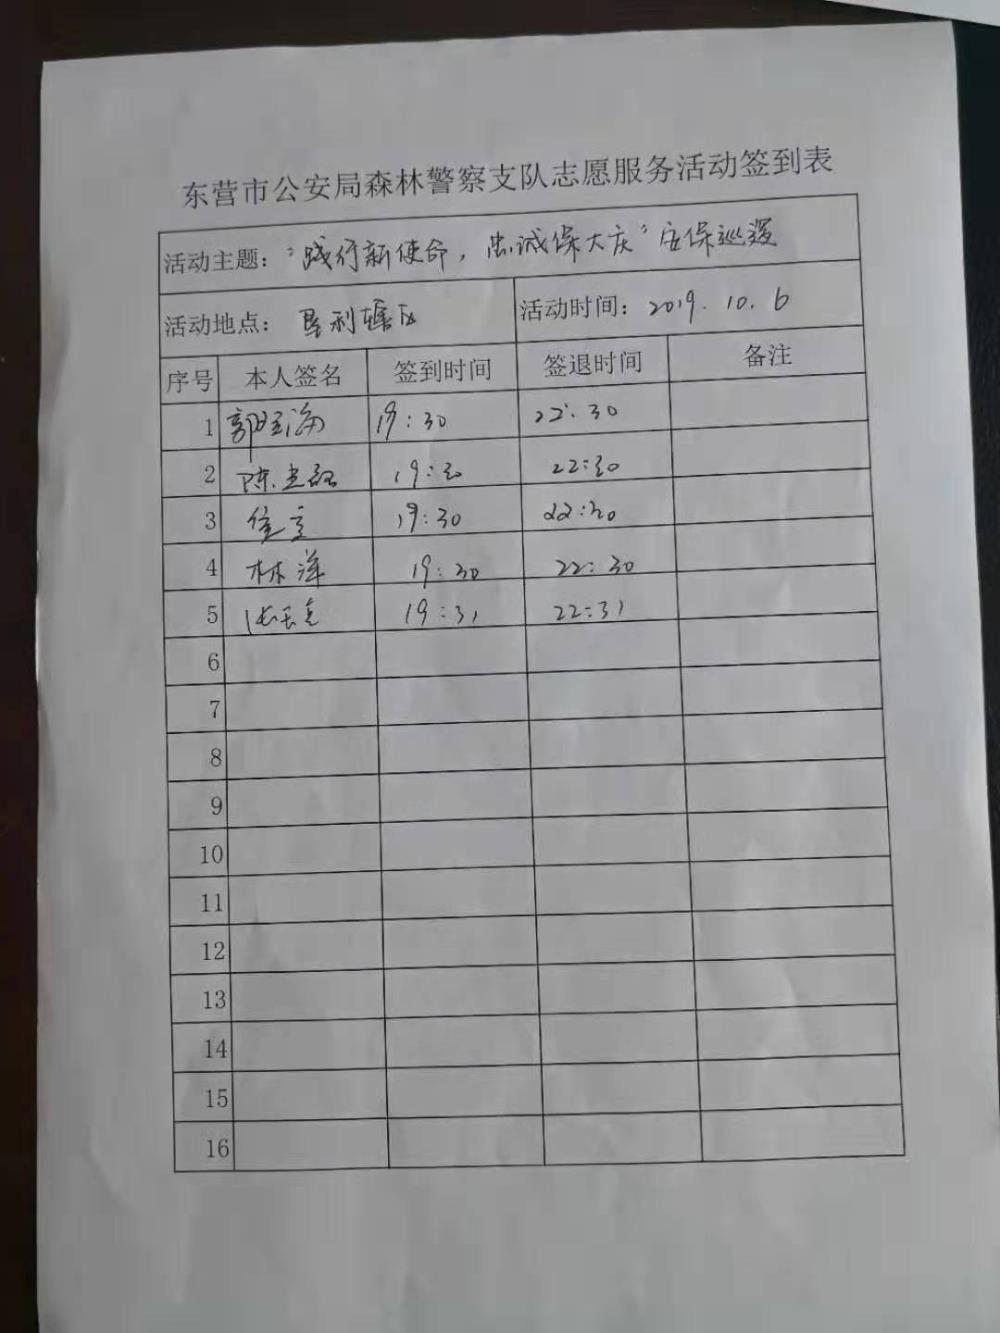 东营市公安局森林警察支队志愿服务活动签到表
活动主题："践行新使命，忠诚保大庆"安保巡逻
活动地点：垦利辖区 活动时间：2019.10.6
序号 本人签名 签到时间 签退时间 备注
1 19:30 22:30
2 19:30 22:30
3 19:30 22:30
4 林洋 19:30 22:30
5 19:31 22:31
6
7
8
9
10
11
12
13
14
15
16